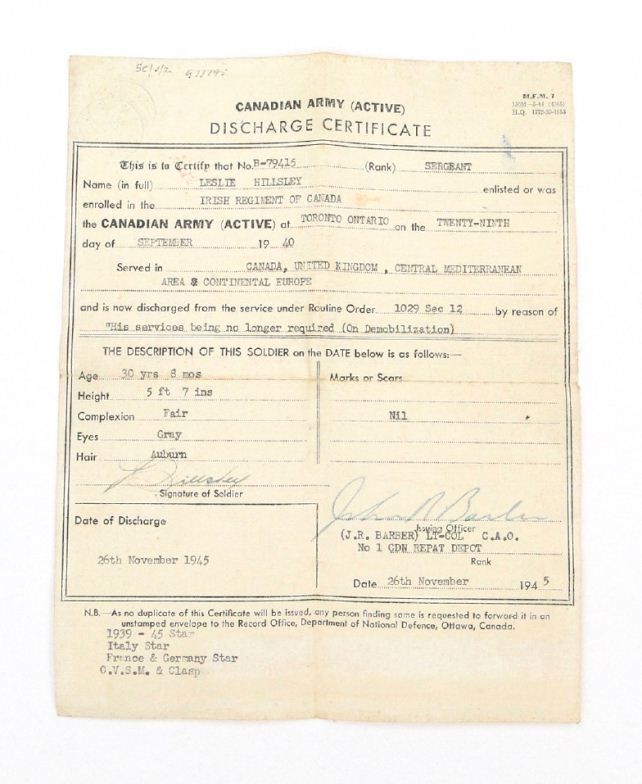 M.F.M. 7
CANADIAN ARMY (ACTIVE)
DISCHARGE CERTIFICATE
This is to Certify that No. B-79415 (Rank) SERGEANT
Name (in full) LESLIE HILLSLEY enlisted or was
enrolled in the IRISH REGIMENT OF CANADA
the CANADIAN ARMY (ACTIVE) at TORONTO ONTARIO on the TWENTY-NINTH
day of SEPTEMBER 19 40
Served in CANADA, UNITED KINGDOM , CENTRAL MEDITERRANEAN
AREA & CONTINENTAL EUROPE
and is now discharged from the service under Routine Order 1029 Sec 12 by reason of
"His services being no longer required (On Demobilization)
THE DESCRIPTION OF THIS SOLDIER on the DATE below is as follows:—
Age 30 yrs 8 mos Marks or Scars
Height 5 ft 7 ins
Complexion Fair Nil
Eyes Gray
Hair Auburn
L Hillsley
Signature of Soldier
John R Barber
Date of Discharge Issuing Officer
(J.R. BARBER) LT-COL C.A.O.
No 1 CDN REPAT DEPOT
26th November 1945 Rank
Date 26th November 194 5
N.B.—As no duplicate of this Certificate will be issued, any person finding same is requested to forward it in an
unstamped envelope to the Record Office, Department of National Defence, Ottawa, Canada.
1939 - 45 Star
Italy Star
France & Germany Star
C.V.S.M. & Clasp